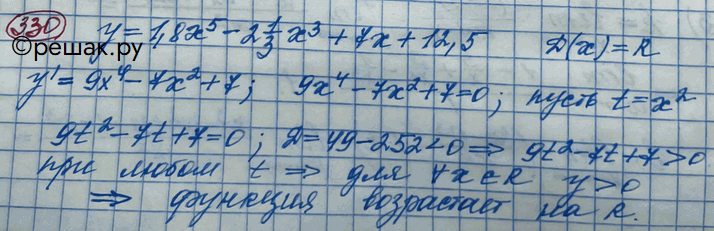 330 y = 1,8x⁵ - 2 1/3 x³ + 7x + 12,5 D(x) = R
©решак.ру
y' = 9x⁴ - 7x² + 7; 9x⁴ - 7x² + 7 = 0; пусть t = x²
9t² - 7t + 7 = 0; D = 49 - 252 < 0 ⇒ 9t² - 7t + 7 > 0
при любом t ⇒ для ∀x∈R y > 0
⇒ функция возрастает на R.